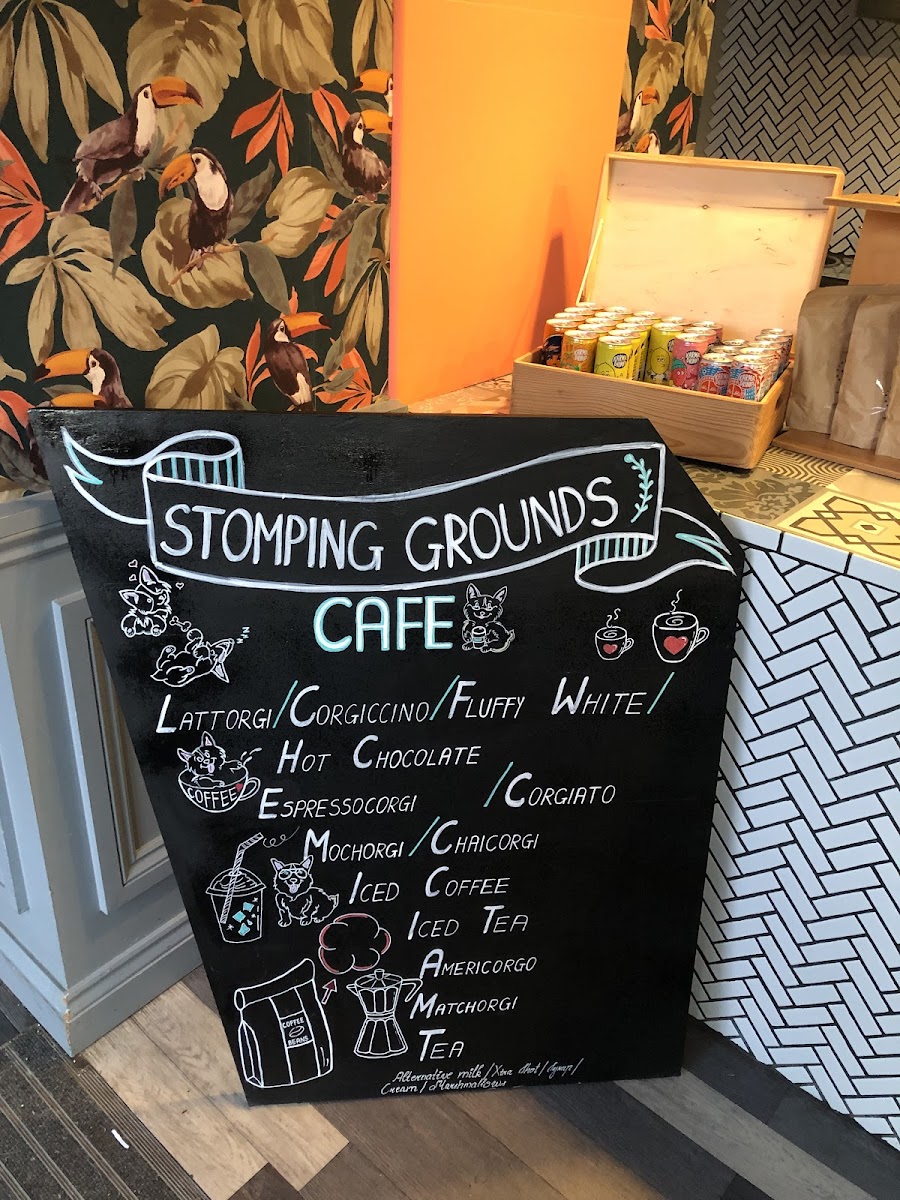 STOMPING GROUNDS
CAFE
LATTORGI/CORGICCINO/FLUFFY WHITE/
HOT CHOCOLATE
COFFEE
ESPRESSOCORGI /CORGIATO
MOCHORGI/CHAICORGI
ICED COFFEE
ICED TEA
AMERICORGO
MATCHORGI
COFFEE
BEANS
TEA
Alternative milk/Xtra shot/Syrup/
Cream/Marshmallows